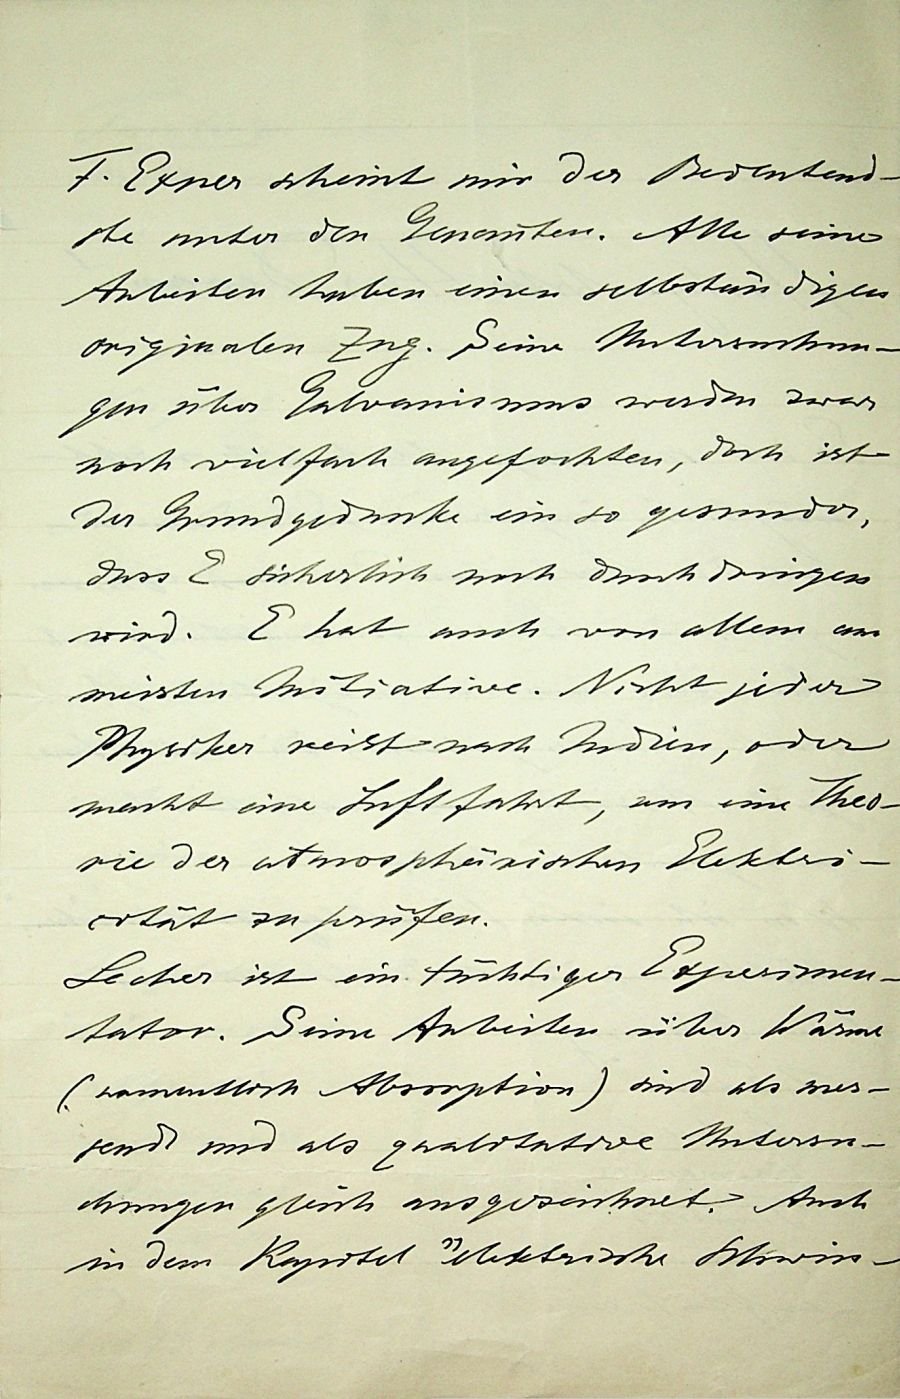 F. Exner scheint mir der Bedeutend-
ste unter den Genannten. Alle seine
Arbeiten haben einen selbständigen
originalen Zug. Seine Untersuchun-
gen über Galvanismus werden zwar
noch vielfach angefochten, doch ist
der Grundgedanke ein so gesunder,
dass E sicherlich noch durchdringen
wird. E hat auch von allem am
meisten Initiative. Nicht jeder
Physiker reist nach Indien, oder
macht eine Luftfahrt, um eine Theo-
rie der atmosphärischen Elektri-
cität zu prüfen.
Lecher ist ein tüchtiger Experimen-
tator. Seine Arbeiten über Wärme
(namentlich Absorption) sind als mes-
sende und als qualitative Untersu-
chungen gleich ausgezeichnet. Auch
in dem Kapitel "elektrische Schwin-